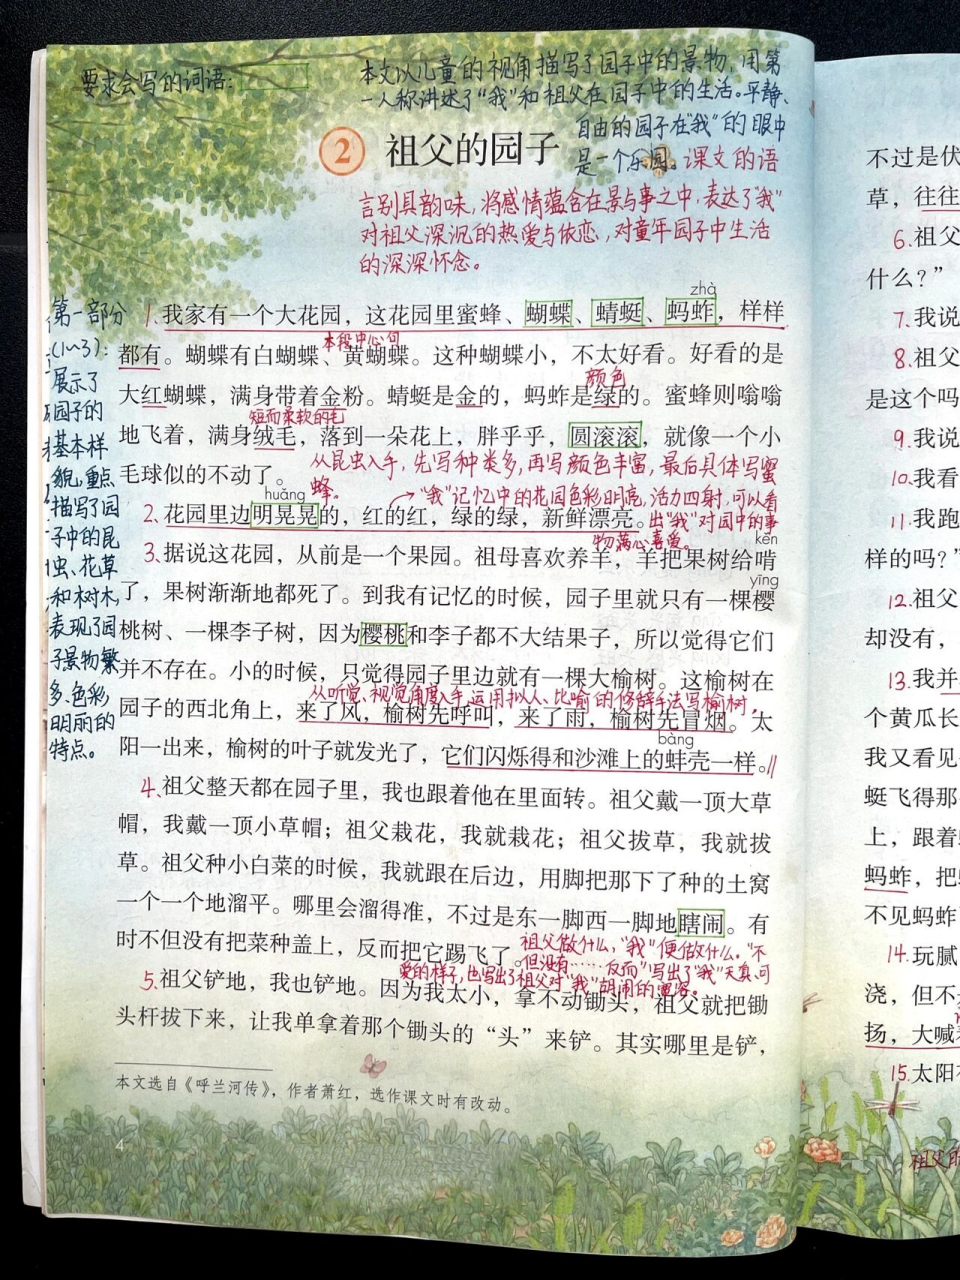 要求会写的词语:
本文以儿童的视角描写了园子中的景物,用第
一人称讲述了“我”和祖父在园子中的生活。平静、
自由的园子在“我”的眼中
是一个乐园。课文的语
2 祖父的园子
言别具韵味,将感情蕴含在景与事之中,表达了“我”
对祖父深沉的热爱与依恋,对童年园子中生活
的深深怀念。
第一部分
(1~3):
展示了
园子的
基本样
貌,重点
描写了园
子中的昆
虫、花草
和树木,
表现了园
子景物繁
多、色彩
明丽的
特点。
zhà
1.我家有一个大花园,这花园里蜜蜂、蝴蝶、蜻蜓、蚂蚱,样样
本段中心句
都有。蝴蝶有白蝴蝶、黄蝴蝶。这种蝴蝶小,不太好看。好看的是
颜色
大红蝴蝶,满身带着金粉。蜻蜓是金的,蚂蚱是绿的。蜜蜂则嗡嗡
短而柔软的毛
地飞着,满身绒毛,落到一朵花上,胖乎乎,圆滚滚,就像一个小
毛球似的不动了。
从昆虫入手,先写种类多,再写颜色丰富,最后具体写蜜
蜂。
“我”记忆中的花园色彩明亮,活力四射,可以看
huǎng
2.花园里边明晃晃的,红的红,绿的绿,新鲜漂亮。
出“我”对园中的事
物满心喜爱。
kěn
3.据说这花园,从前是一个果园。祖母喜欢养羊,羊把果树给啃
yīng
了,果树渐渐地都死了。到我有记忆的时候,园子里就只有一棵樱
桃树、一棵李子树,因为樱桃和李子都不大结果子,所以觉得它们
并不存在。小的时候,只觉得园子里边就有一棵大榆树。这榆树在
从听觉、视觉角度入手,运用拟人、比喻的修辞手法写榆树。
园子的西北角上,来了风,榆树先呼叫,来了雨,榆树先冒烟。太
bàng
阳一出来,榆树的叶子就发光了,它们闪烁得和沙滩上的蚌壳一样。
4.祖父整天都在园子里,我也跟着他在里面转。祖父戴一顶大草
帽,我戴一顶小草帽;祖父栽花,我就栽花;祖父拔草,我就拔
草。祖父种小白菜的时候,我就跟在后边,用脚把那下了种的土窝
一个一个地溜平。哪里会溜得准,不过是东一脚西一脚地瞎闹。有
时不但没有把菜种盖上,反而把它踢飞了。
祖父做什么,“我”便做什么。“不
但没有……反而”写出了“我”天真、可
爱的样子,也写出了祖父对“我”胡闹的宽容。
5.祖父铲地,我也铲地。因为我太小,拿不动锄头,祖父就把锄
头杆拔下来,让我单拿着那个锄头的“头”来铲。其实哪里是铲,
本文选自《呼兰河传》,作者萧红,选作课文时有改动。
4
不过是伏
草,往往
6.祖父
什么?”
7.我说
8.祖父
是这个吗
9.我说
10.我看
11.我跑
样的吗?”
12.祖父
却没有,
13.我并
个黄瓜长
我又看见
蜓飞得那
上,跟着
蚂蚱,把
不见蚂蚱
14.玩腻
浇,但不
扬,大喊
15.太阳
祖父的